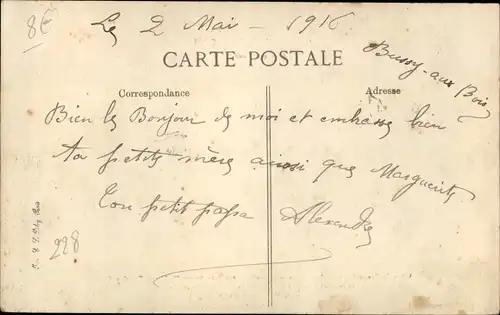 8€
Le 2 Mai - 1916
CARTE POSTALE
Bussy-aux Bois
Correspondance
Adresse
Bien le Bonjour de moi et embrasse bien
ta petite mère ainsi que Marguerite
Ton petit papa Alexandre
228